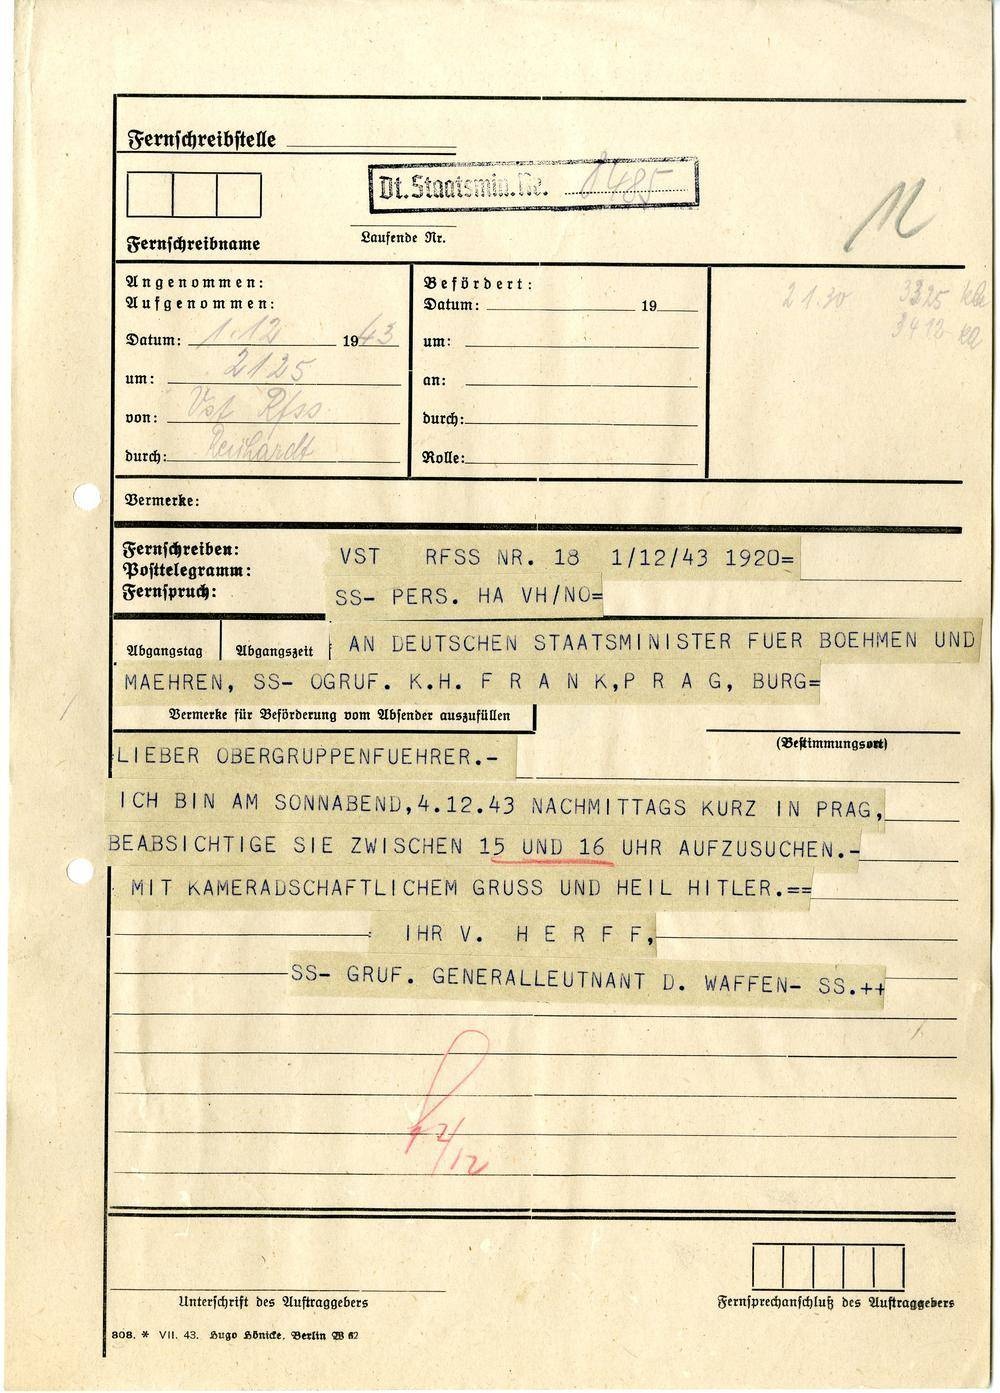 Fernschreibstelle
Dt. Staatsmin. Nr. 8485
Laufende Nr.
Fernschreibname
Angenommen:
Aufgenommen:
Datum: 1.12 1943
um: 2125
von: Vst Rfss
durch: Reichardt
Befördert:
Datum: 19
um:
an:
durch:
Rolle:
21.30 3325
3412
Vermerke:
Fernschreiben:
Posttelegramm:
Fernspruch:
VST RFSS NR. 18 1/12/43 1920=
SS- PERS. HA VH/NO=
Abgangstag Abgangszeit
AN DEUTSCHEN STAATSMINISTER FUER BOEHMEN UND
MAEHREN, SS- OGRUF. K.H. F R A N K,P R A G, BURG=
Vermerke für Beförderung vom Absender auszufüllen
(Bestimmungsort)
LIEBER OBERGRUPPENFUEHRER.-
ICH BIN AM SONNABEND,4.12.43 NACHMITTAGS KURZ IN PRAG,
BEABSICHTIGE SIE ZWISCHEN 15 UND 16 UHR AUFZUSUCHEN.-
MIT KAMERADSCHAFTLICHEM GRUSS UND HEIL HITLER.==
IHR V. H E R F F,
SS- GRUF. GENERALLEUTNANT D. WAFFEN- SS.++
2/12
Unterschrift des Auftraggebers
Fernsprechanschluß des Auftraggebers
808. * VII. 43. Hugo Hönicke, Berlin W 62